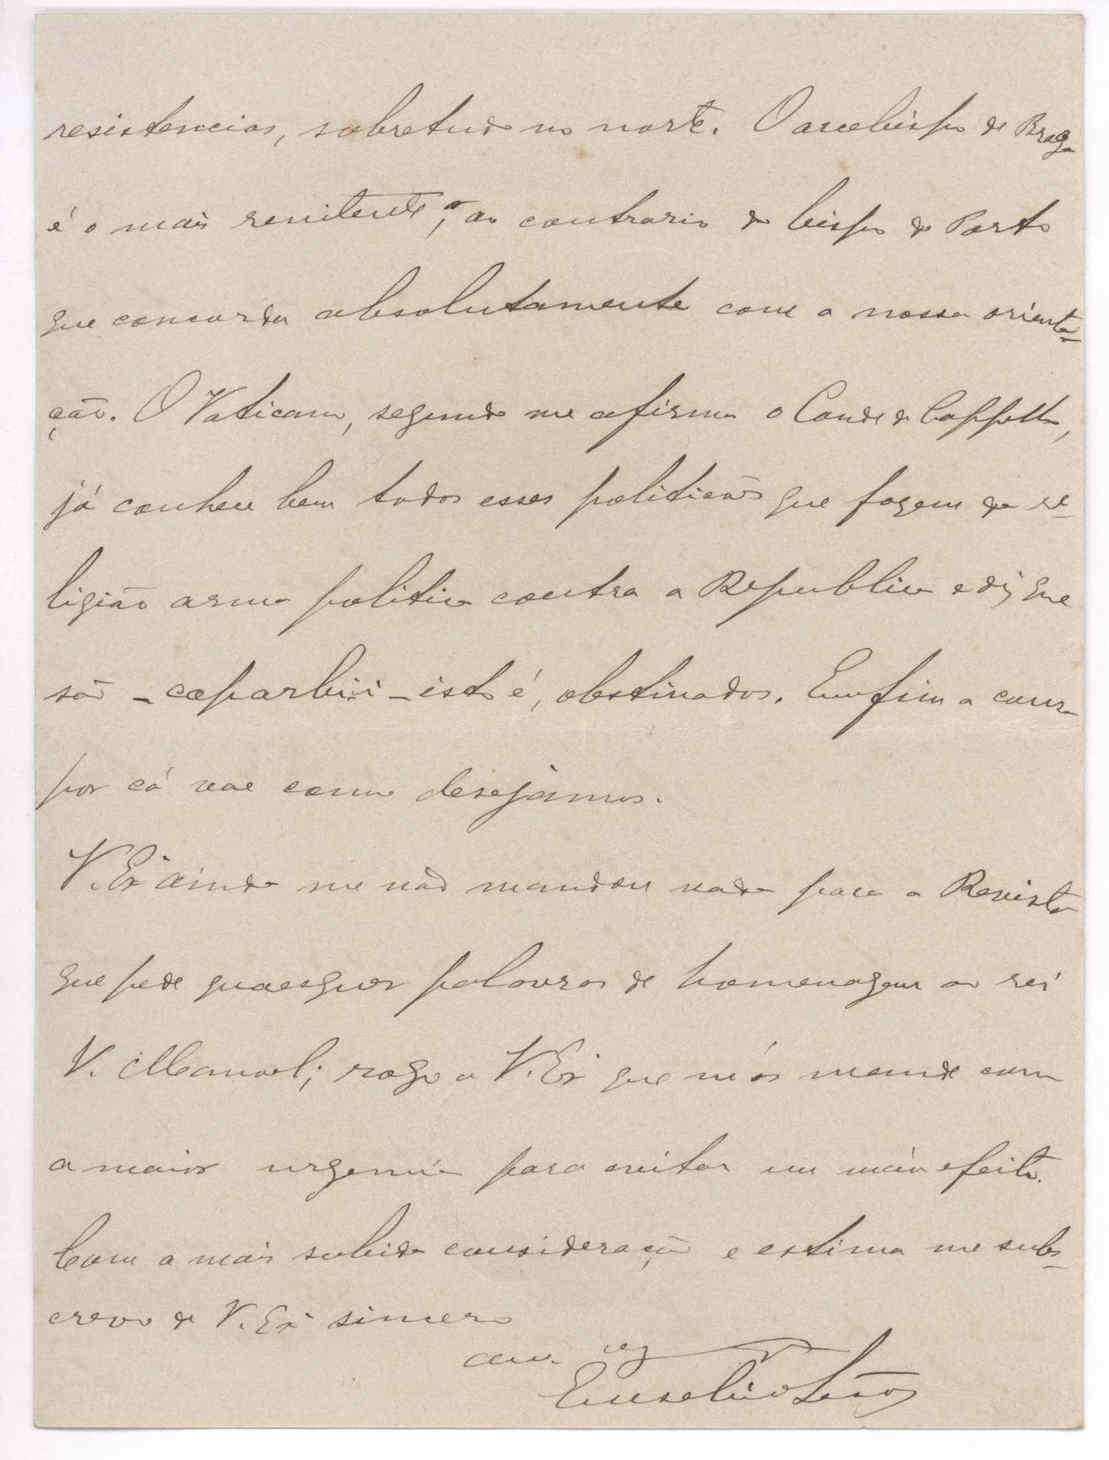 resistencias, sobretudo no norte. O arcebispo de Braga
é o mais renitente, ao contrario do bispo do Porto
que concorda absolutamente com a nossa orienta-
ção. O Vaticano, segundo me afirma o Conde de Cappello,
já conhece bem todos esses politicões que fazem da re-
ligião arma politica contra a Republica e diz que
são - caparbii - isto é, obstinados. Emfim a cousa
por cá vae como desejâmos.
V. Exª ainda me não mandou nada para a Revista
que pede quaesquer palavras de homenagem ao rei
V. Manoel; rogo a V. Exª que m'ás mande com
a maior urgencia para evitar um máu efeito.
Com a mais subida consideração e estima me subs-
crevo de V. Exª sincero
am.
Eusebio Leão